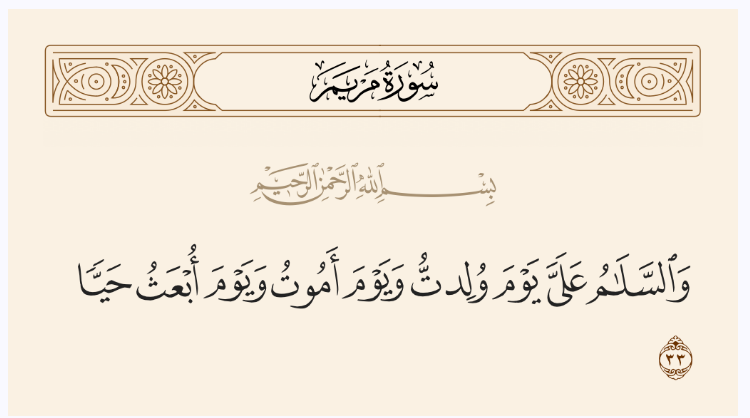 سُورَةُ مَرْيَمَ
بِسْمِ ٱللَّهِ ٱلرَّحْمَٰنِ ٱلرَّحِيمِ
وَٱلسَّلَٰمُ عَلَىَّ يَوْمَ وُلِدتُّ وَيَوْمَ أَمُوتُ وَيَوْمَ أُبْعَثُ حَيًّا
٣٣